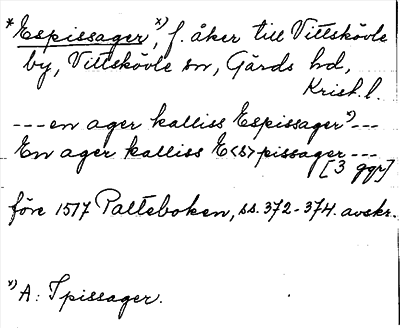 *Espissager,ˣ⁾ f. åker till Vittskövle
by, Vittskövle sn, Gärds hd,
Krist. l.
---en ager kalliss Espissagerˣ⁾---
En ager kalliss E<s>pissager---
[3 ggr]
före 1517 Palteboken, ss. 372-374. avskr.
ˣ⁾ A: Tpissager.